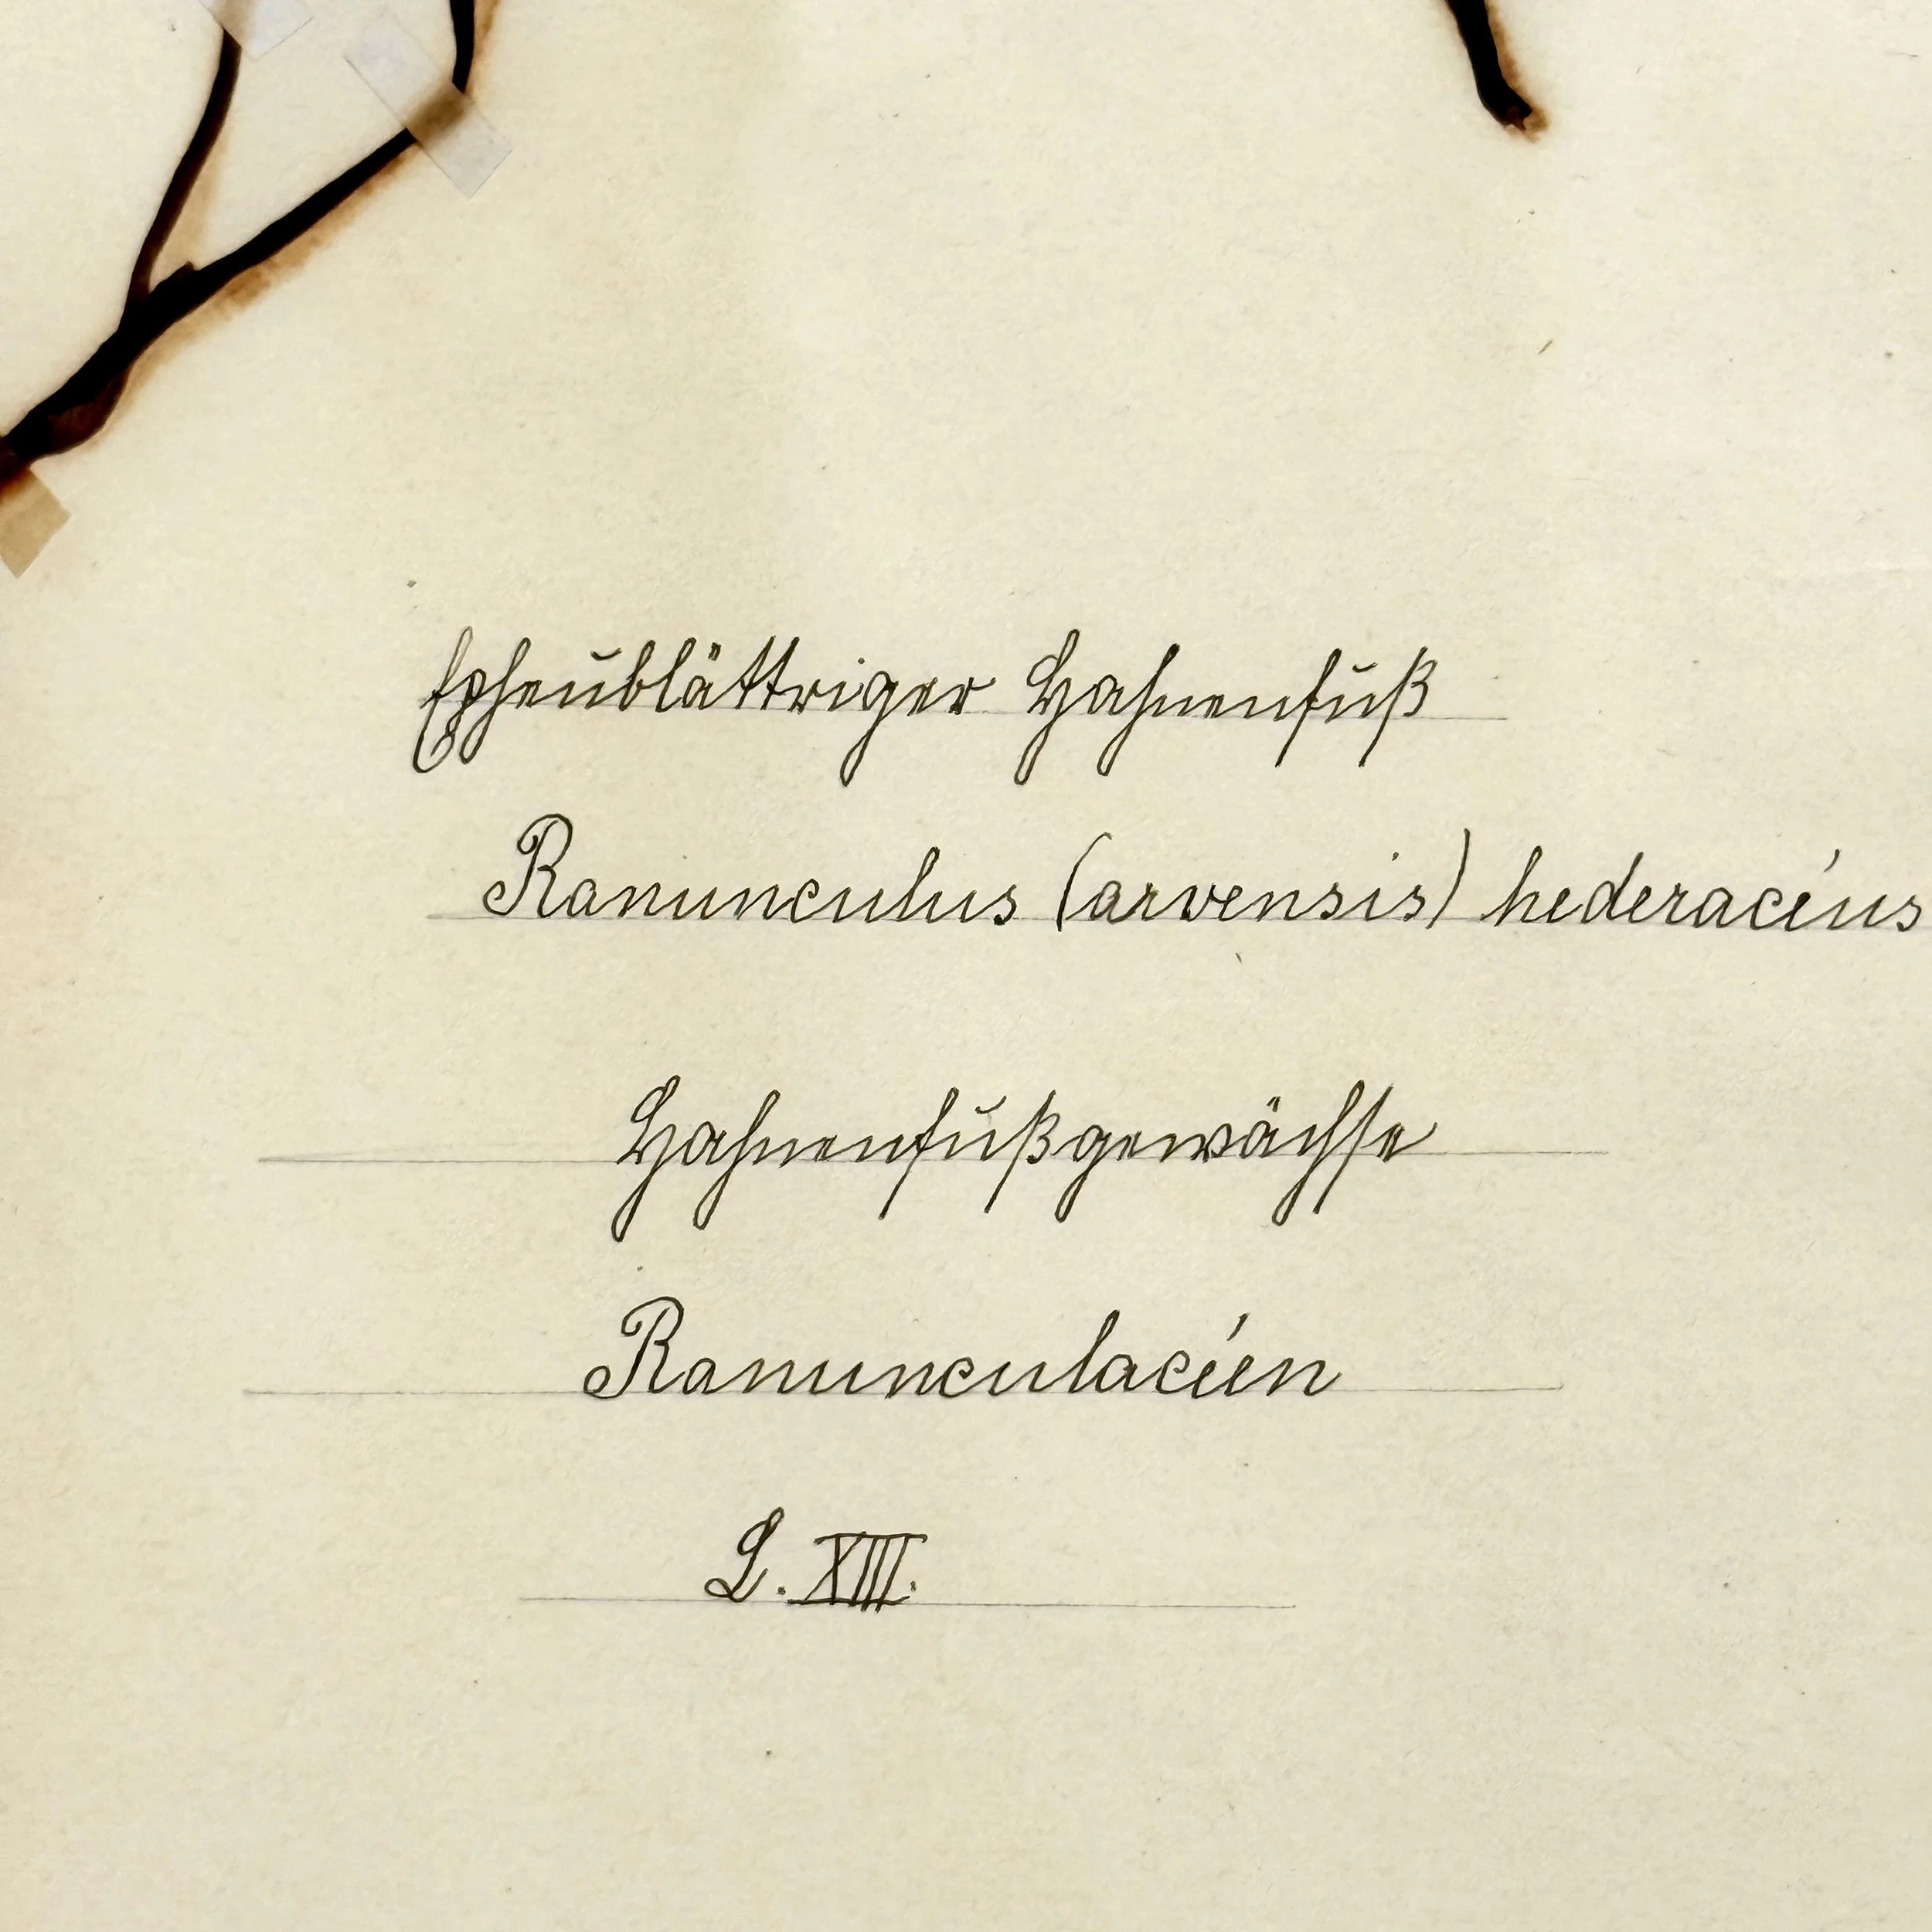 Epheublättriger Hahnenfuß
Ranunculus (arvensis) hederacéus
Hahnenfußgewächse
Ranunculacéen
L. XIII.